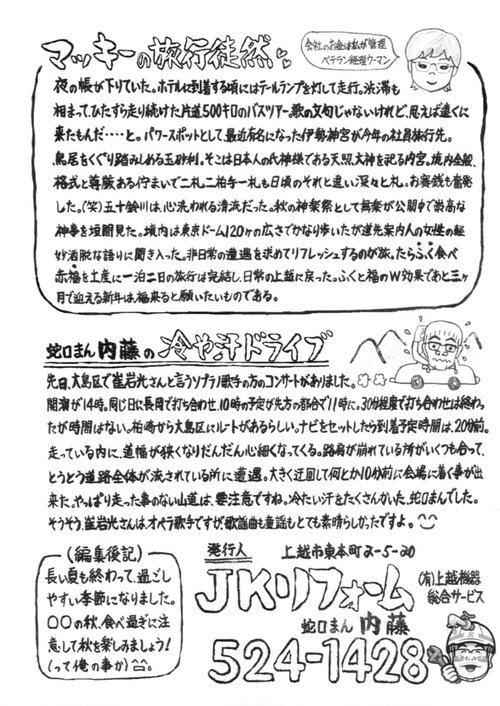 マッキーの旅行徒然
会社のお金は私が管理
ベテラン経理ウーマン
夜の帳が下りていた。ホテルに到着する頃にはテールランプを灯して走行。渋滞も
相まって、ひたすら走り続けた片道500キロのバスツアー。歌の文句じゃないけれど、思えば遠くに
来たもんだ……と。パワースポットとして、最近有名になった伊勢神宮が今年の社員旅行先。
鳥居をくぐり踏みしめる玉砂利。そこは日本人の氏神様である天照大神を祀る内宮。境内全般、
格式と尊厳ある佇まいで二礼二拍手一礼も日頃のそれと違い深々と礼。お賽銭も奮発
した。(笑)五十鈴川は、心洗われる清流だった。秋の神楽祭として舞楽が公開中で崇高な
神事を垣間見た。境内は東京ドーム120ヶの広さでかなり歩いたが道先案内人の女性の軽
妙洒脱な語りに聞き入った。非日常の遭遇を求めてリフレッシュするのが旅。たらふく食べ
赤福を土産に一泊二日の旅行は完結し、日常の上越に戻った。ふくと福のW効果であと三ヶ
月で迎える新年は、福来ると願いたいものである。
蛇口まん内藤の冷や汗ドライブ
先日、大島区で崔岩光さんと言うソプラノ歌手の方のコンサートがありました。
開演が14時。同じ日に長岡で打ち合わせ、10時の予定が先方の都合で11時に。30分程度で打ち合わせは終わっ
たが時間はない。柏崎から大島区にルートがあるらしい。ナビをセットしたら到着予定時間は、20分前。
走っている内に、道幅が狭くなりだんだん心細くなってくる。路肩が崩れている所がいくつも合って、
とうとう道路全体が流されている所に遭遇。大きく迂回して何とか10分前に会場に着く事が出
来た。やっぱり走った事のない山道は、要注意ですね。冷たい汗をたくさんかいた、蛇口まんでした。
そうそう、崔岩光さんは、オペラ歌手ですが、歌謡曲も童謡もとても素晴らしかったですよ。
(編集後記)
長い夏も終わって、過ごし
やすい季節になりました。
○○の秋、食べ過ぎに注
意して秋を楽しみましょう!
(って俺の事か)
発行人
上越市東本町2-5-20
JKリフォーム
(有)上越機器
総合サービス
蛇口まん 内藤
524-1428